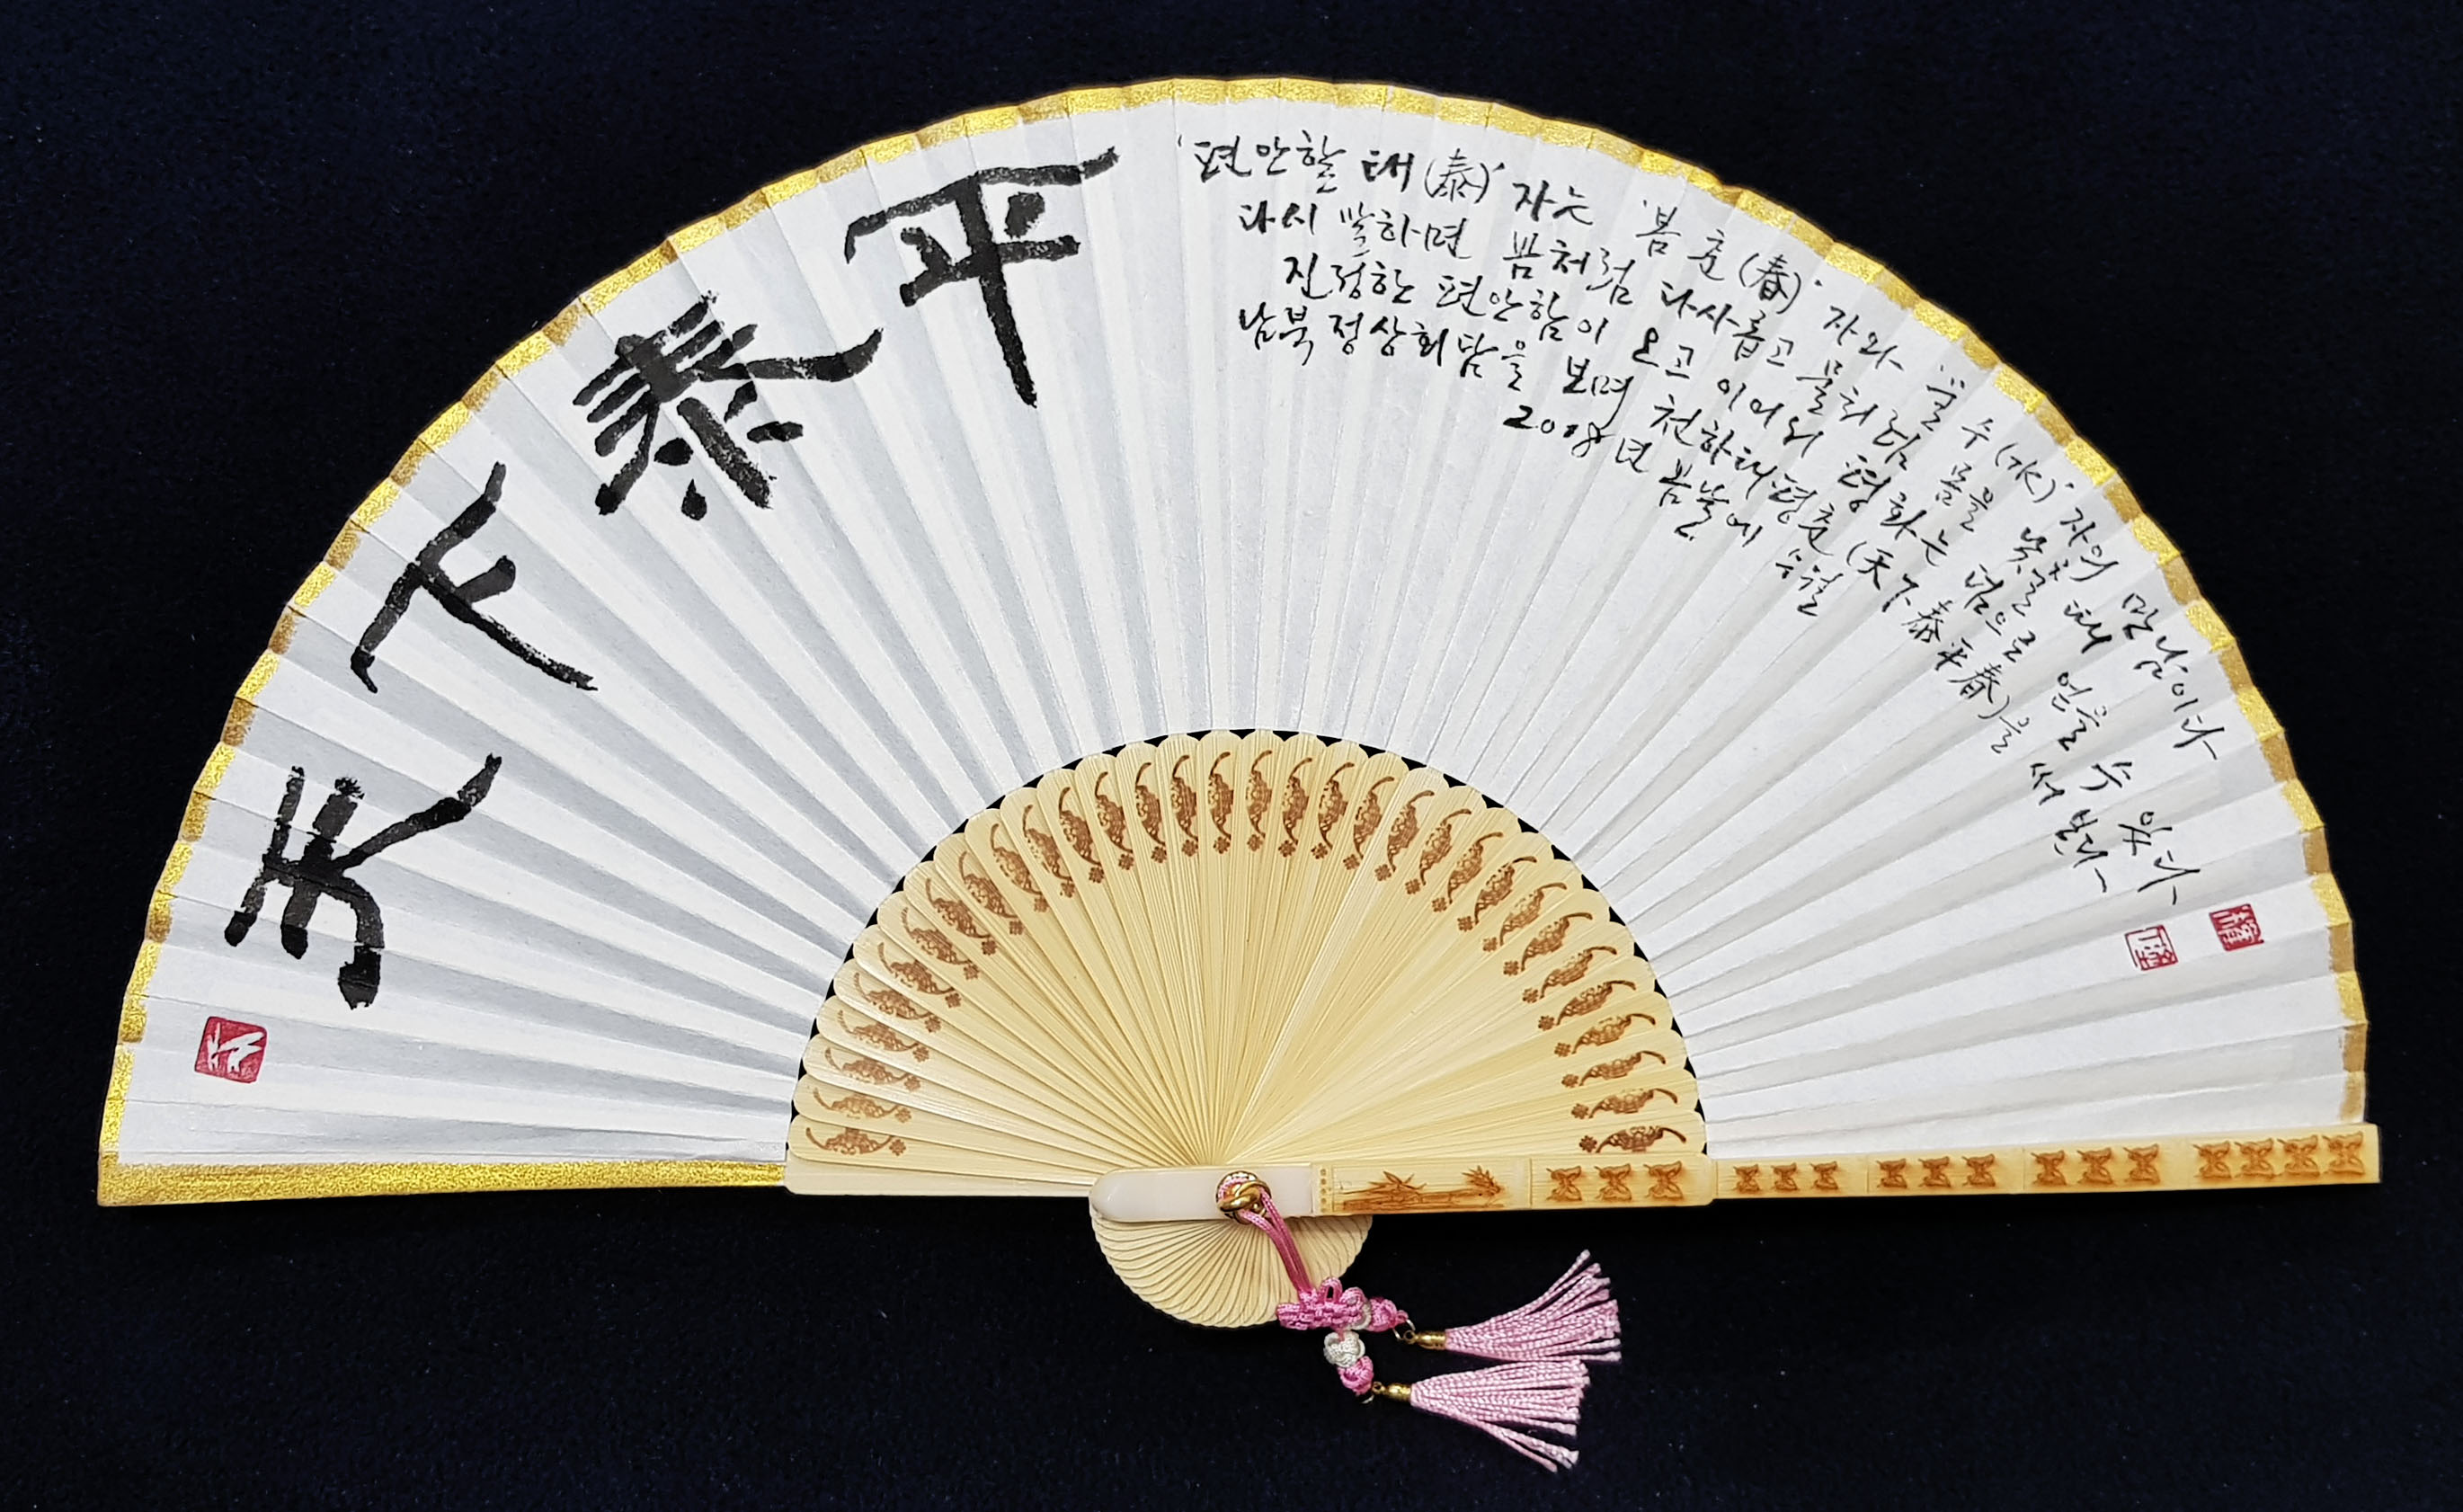 天下泰平
'편안할 태(泰)' 자는 '봄 춘(春)' 자와 '물 수(水)' 자의 만남이다
다시 말하면 봄처럼 다사롭고 물처럼 몸을 낮출 때
진정한 편안함이 오고 이어서 평화는 덤으로 얻을 수 있다
남북정상회담을 보며 천하태평춘(天下泰平春)을 써 본다
2018년 봄날에